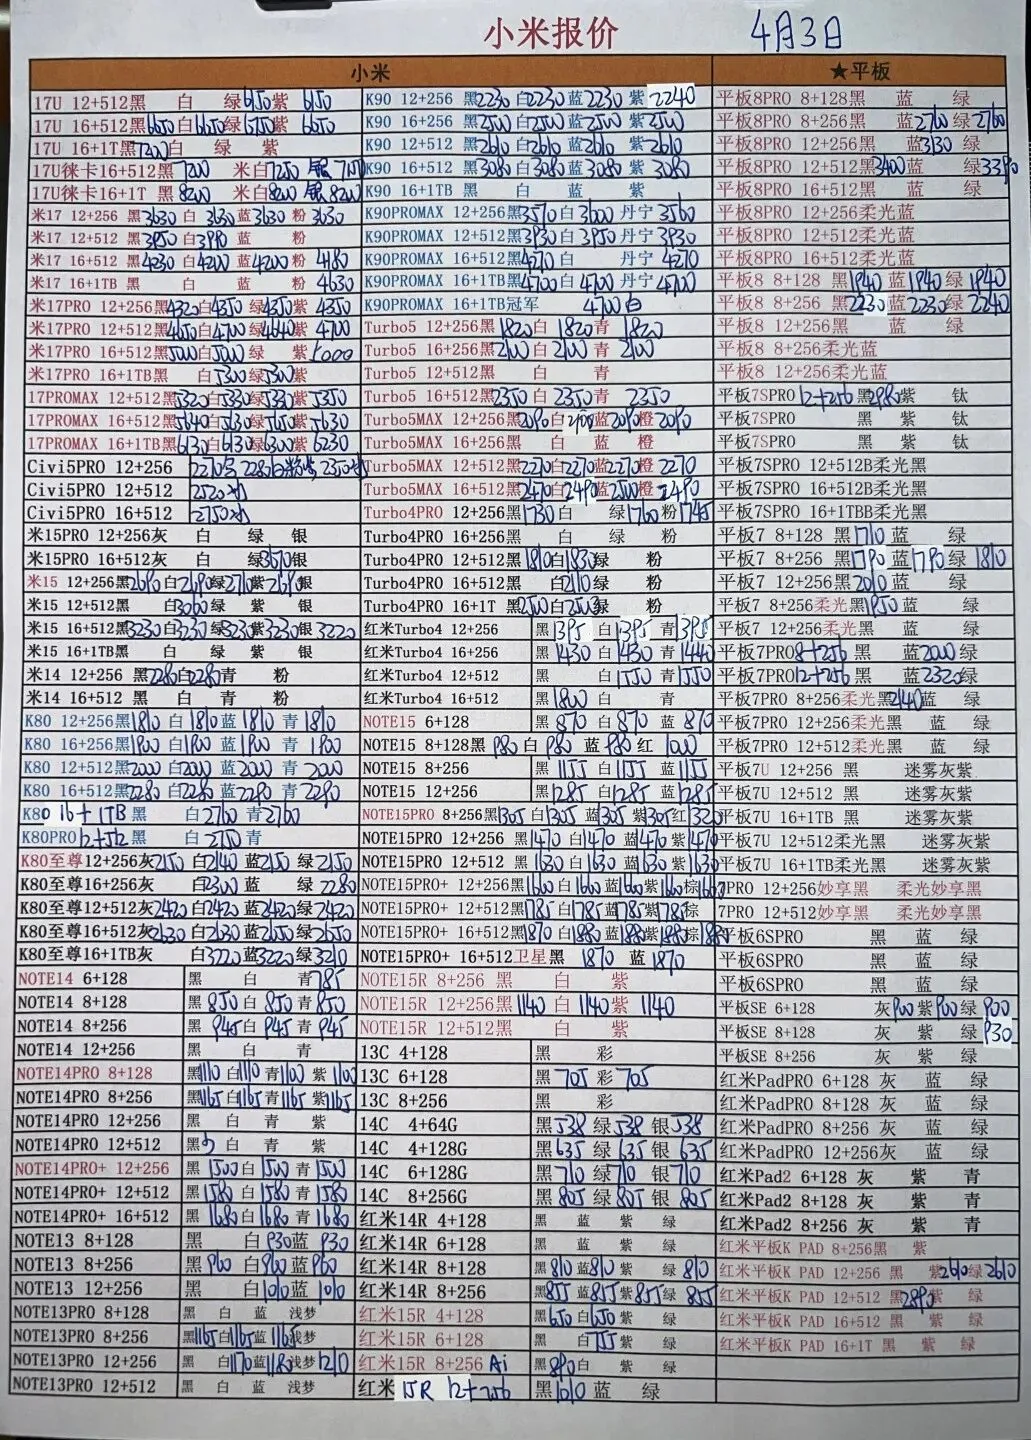 小米报价 4月3日
小米 ★平板
17U 12+512黑 白 绿6150紫 6150
17U 16+512黑6650白6650绿6750紫 6650
17U 16+1T黑7200白 绿 紫
17U徕卡16+512黑 7200 米白7250 银 7150
17U徕卡16+1T 黑 8200 米白8200 银8200
米17 12+256 黑3630 白 3630 蓝3630 粉 3630
米17 12+512 黑3950 白3990 蓝 粉
米17 16+512 黑4230 白4200 蓝4200 粉 4180
米17 16+1TB 黑 白 蓝 粉 4630
米17PRO 12+256黑4320白4350 绿4350紫 4350
米17PRO 12+512黑4650白4700绿4640紫 4700
米17PRO 16+512黑5000白5000 绿 紫5000
米17PRO 16+1TB黑 白5300绿5300紫
17PROMAX 12+512黑5320白5330绿5330紫5350
17PROMAX 16+512黑5640白5630绿5650紫5630
17PROMAX 16+1TB黑6130白6130绿6300紫 6230
Civi5PRO 12+256
Civi5PRO 12+512 2520
Civi5PRO 16+512 2750
米15PRO 12+256灰 白 绿 银
米15PRO 16+512灰 白 绿3670银
米15 12+256黑2690白2690绿2710紫2690银
米15 12+512黑 白3060绿 紫 银
米15 16+512黑3230白3230绿3230紫3230银 3220
米15 16+1TB黑 白 绿 紫 银
米14 12+256 黑2280白2280青 粉
米14 16+512 黑 白 青 粉
K80 12+256黑1810 白 1810蓝 1810 青 1810
K80 16+256黑1900 白1900 蓝1900 青 1900
K80 12+512黑2000 白2000 蓝2000 青 2000
K80 16+512黑2280 白2280 蓝2290 青 2290
K80 16+1TB 黑 白2760 青2760
K80PRO12+512 黑 白 2150 青
K80至尊12+256灰2150 白2140 蓝2150 绿2150
K80至尊16+256灰 白2300 蓝 绿 2280
K80至尊12+512灰2420 白2420 蓝2420 绿2420
K80至尊16+512灰2630 白2630 蓝2650 绿2650
K80至尊16+1TB灰 白3220蓝3220 绿3210
NOTE14 6+128 黑 白 青785
NOTE14 8+128 黑850白 850青850
NOTE14 8+256 黑 945白945青 945
NOTE14 12+256 黑 白 青
NOTE14PRO 8+128 黑1110 白1110青1100 紫 1100
NOTE14PRO 8+256 黑1165白1165青1165紫1165
NOTE14PRO 12+256 黑 白 青 紫
NOTE14PRO 12+512 黑 白 青 紫
NOTE14PRO+ 12+256 黑 1500白 1500 青1500
NOTE14PRO+ 12+512 黑1580 白1580 青1580
NOTE14PRO+ 16+512 黑 1680白1680 青1680
NOTE13 8+128 黑 白930蓝 930
NOTE13 8+256 黑960 白960蓝960
NOTE13 12+256 黑 白1010蓝1010
NOTE13PRO 8+128 黑 白 蓝 浅梦
NOTE13PRO 8+256 黑1165白1165蓝1165浅梦
NOTE13PRO 12+256 黑 白1170蓝1180浅梦1210
NOTE13PRO 12+512 黑 白 蓝 浅梦
K90 12+256 黑2230 白2230蓝2230 紫2240
K90 16+256 黑2500 白2500 蓝2500 紫2500
K90 12+512 黑2610 白2610 蓝2610 紫2610
K90 16+512 黑3080 白3080 蓝3080 紫3080
K90 16+1TB 黑 白 蓝 紫
K90PROMAX 12+256黑3570白 3600 丹宁 3560
K90PROMAX 12+512黑3930白 3950 丹宁 3930
K90PROMAX 16+512黑4270白 丹宁 4270
K90PROMAX 16+1TB黑4700白 4700 丹宁 4700
K90PROMAX 16+1TB冠军 4700 白
Turbo5 12+256黑1820白 1820青 1820
Turbo5 16+256黑2100白 2100 青 2100
Turbo5 12+512黑 白 青
Turbo5 16+512黑2350白 2350青 2350
Turbo5MAX 12+256黑2090白2100蓝2090橙2090
Turbo5MAX 16+256黑 白 蓝 橙
Turbo5MAX 12+512黑2270白2270蓝2270橙 2270
Turbo5MAX 16+512黑2470白2490蓝2500橙 2490
Turbo4PRO 12+256黑1730白 绿1760粉1745
Turbo4PRO 16+256黑 白 绿 粉
Turbo4PRO 12+512黑1810白1830绿 粉
Turbo4PRO 16+512黑 白2110绿 粉
Turbo4PRO 16+1T 黑2500白2500绿 粉
红米Turbo4 12+256 黑1395 白1395 青1395
红米Turbo4 16+256 黑1430 白1430 青1440
红米Turbo4 12+512 黑 白1550 青1550
红米Turbo4 16+512 黑1800 白 青
NOTE15 6+128 黑 870白 870 蓝 870
NOTE15 8+128黑 980 白 980 蓝 980 红 1000
NOTE15 8+256 黑 1155 白1155 蓝1155
NOTE15 12+256 黑1285 白1285 蓝1285
NOTE15PRO 8+256黑1305 白1305 蓝1305 紫1305红1320
NOTE15PRO 12+256黑1470 白1470 蓝1470 紫1470
NOTE15PRO 12+512 黑1630 白1630 蓝1630 紫1630
NOTE15PRO+ 12+256黑1660 白1660 蓝1660紫1660棕1660
NOTE15PRO+ 12+512黑1785 白1785蓝1785紫1785棕
NOTE15PRO+ 16+512黑1870 白1880 蓝1880紫1880棕1880
NOTE15PRO+ 16+512卫星黑 1870 蓝1870
NOTE15R 8+256 黑 白 紫
NOTE15R 12+256黑1140 白 1140紫 1140
NOTE15R 12+512黑 白 紫
13C 4+128 黑 彩
13C 6+128 黑 705 彩 705
13C 8+256 黑 彩
14C 4+64G 黑538 绿538 银538
14C 4+128G 黑635 绿635 银 635
14C 6+128G 黑710 绿710 银710
14C 8+256G 黑805 绿805 银 805
红米14R 4+128 黑 蓝 紫 绿
红米14R 6+128 黑 蓝 紫 绿
红米14R 8+128 黑810蓝810 紫 绿 810
红米14R 8+256 黑855蓝855紫855绿 855
红米15R 4+128 黑650白650 紫 绿
红米15R 6+128 黑 白755 紫 绿
红米15R 8+256 Ai 黑890白 紫 绿
红米 15R 12+256 黑1010 蓝 绿
平板8PRO 8+128黑 蓝 绿
平板8PRO 8+256黑 蓝2760 绿2760
平板8PRO 12+256黑 蓝3130 绿
平板8PRO 12+512黑3400蓝 绿3390
平板8PRO 16+512黑 蓝 绿
平板8PRO 12+256柔光蓝
平板8PRO 12+512柔光蓝
平板8PRO 16+512柔光蓝
平板8 8+128 黑1940 蓝1940 绿 1940
平板8 8+256 黑2230 蓝2230 绿2240
平板8 12+256黑 蓝 绿
平板8 8+256柔光蓝
平板8 12+256柔光蓝
平板7SPRO 12+256 黑2980紫 钛
平板7SPRO 黑 紫 钛
平板7SPRO 黑 紫 钛
平板7SPRO 12+512B柔光黑
平板7SPRO 16+1TBB柔光黑
平板7 8+128 黑1710 蓝 绿
平板7 8+256 黑1790 蓝1790绿 1810
平板7 12+256黑2010 蓝 绿
平板7 8+256柔光黑1950 蓝 绿
平板7 12+256柔光黑 蓝 绿
平板7PRO8+256 黑 蓝2000绿
平板7PRO12+256 黑 蓝2320绿
平板7PRO 8+256柔光黑2140蓝 绿
平板7PRO 12+256柔光黑 蓝 绿
平板7PRO 12+512柔光黑 蓝 绿
平板7U 12+256 黑 迷雾灰紫
平板7U 12+512 黑 迷雾灰紫
平板7U 16+1TB 黑 迷雾灰紫
平板7U 12+512柔光黑 迷雾灰紫
平板7U 16+1TB柔光黑 迷雾灰紫
7PRO 12+256妙享黑 柔光妙享黑
7PRO 12+512妙享黑 柔光妙享黑
平板6SPRO 黑 蓝 绿
平板6SPRO 黑 蓝 绿
平板6SPRO 黑 蓝 绿
平板SE 6+128 灰900紫900绿 900
平板SE 8+128 灰 紫 绿 930
平板SE 8+256 灰 紫 绿
红米PadPRO 6+128 灰 蓝 绿
红米PadPRO 8+128 灰 蓝 绿
红米PadPRO 8+256灰 蓝 绿
红米PadPRO 12+256灰 蓝 绿
红米Pad2 6+128 灰 紫 青
红米Pad2 8+128 灰 紫 青
红米Pad2 8+256 灰 紫 青
红米平板K PAD 8+256黑 紫
红米平板K PAD 12+256 黑 紫2610绿2610
红米平板K PAD 12+512 黑2890紫 绿
红米平板K PAD 16+512 黑 紫 绿
红米平板K PAD 16+1T 黑 紫 绿